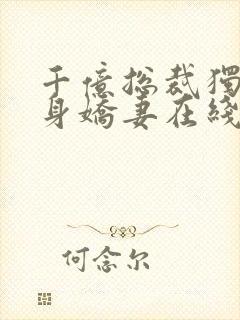 千億總裁獨
身嬌妻在綫
何念尔